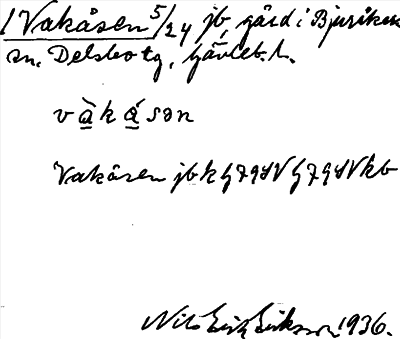 1 Vakåsen 5/24 jb, gård i Bjuråkers
sn. Delsbo tg, Gävleb. l.
v å̀ k ǻ s ə n
Vakåsen jbk G7940V G7940Vkb
Nils Erik Eriksson 1936.